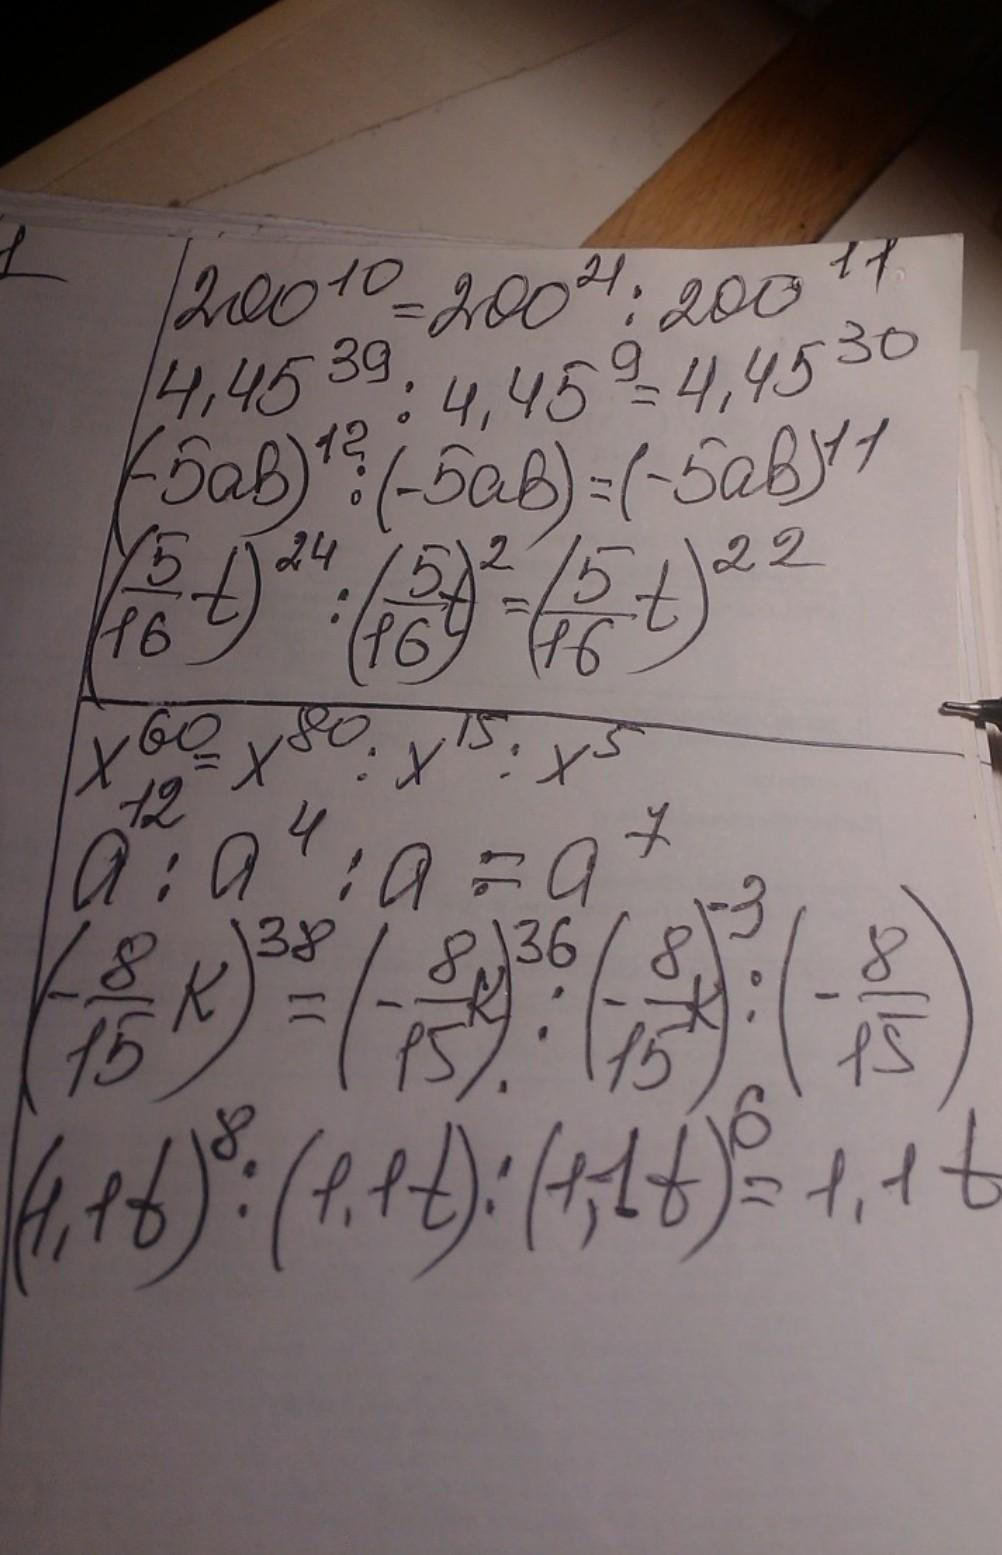 1
200¹⁰ = 200²¹ : 200¹¹
4,45³⁹ : 4,45⁹ = 4,45³⁰
(-5ab)¹² : (-5ab) = (-5ab)¹¹
(5/16 t)²⁴ : (5/16 t)² = (5/16 t)²²
x⁶⁰ = x⁸⁰ : x¹⁵ : x⁵
a¹² : a⁴ : a = a⁷
(-8/15 K)³⁸ = (-8/15 K)³⁶ : (-8/15 K)⁻³ : (-8/15)
(1,1t)⁸ : (1,1t) : (1,1t)⁶ = 1,1t